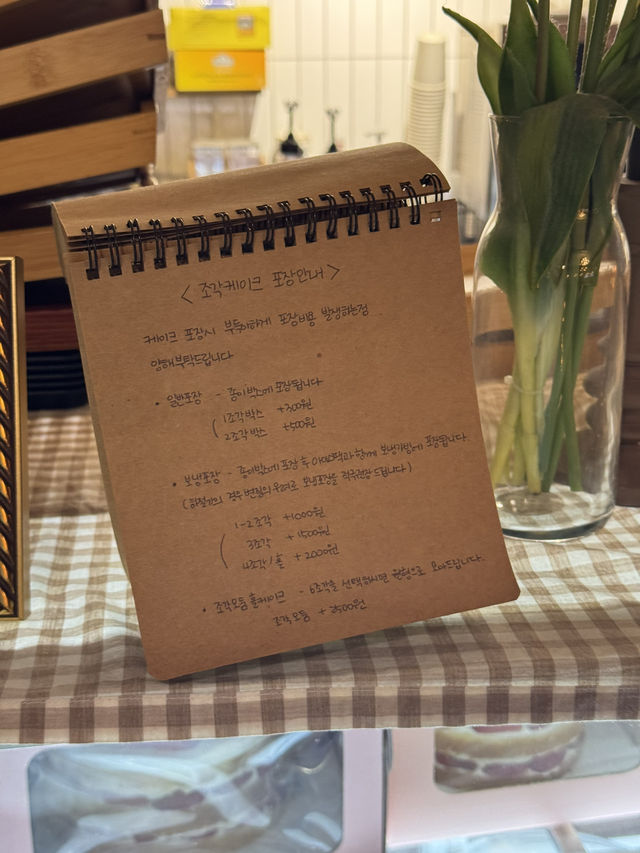 < 조각케이크 포장안내 >
케이크 포장시 부득이하게 포장비용 발생하는점
양해부탁드립니다
• 일반포장 - 종이박스에 포장됩니다
( 1조각박스 +300원
2조각박스 +500원
• 보냉포장 - 종이박스에 포장 후 아이스팩과 함께 보냉가방에 포장됩니다.
(하절기의 경우 변질의 우려로 보냉포장을 적극권장드립니다)
( 1-2조각 +1000원
3조각 +1500원
4조각/홀 +2000원
• 조각모듬홀케이크 - 6조각을 선택하시면 원형으로 모아드립니다.
조각모듬 +2500원